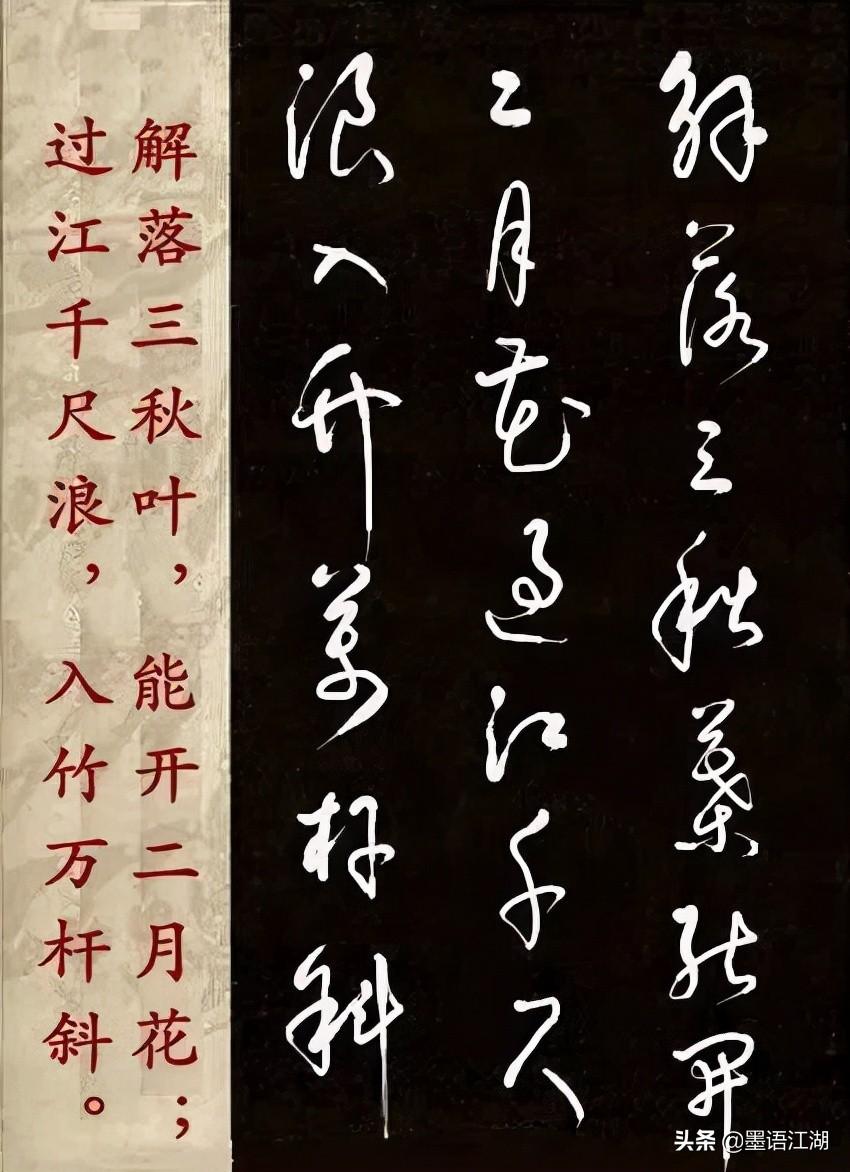 解落三秋葉能開
二月花過江千尺
浪入竹萬杆斜
解落三秋叶，能开二月花；
过江千尺浪，入竹万杆斜。
头条 @墨语江湖